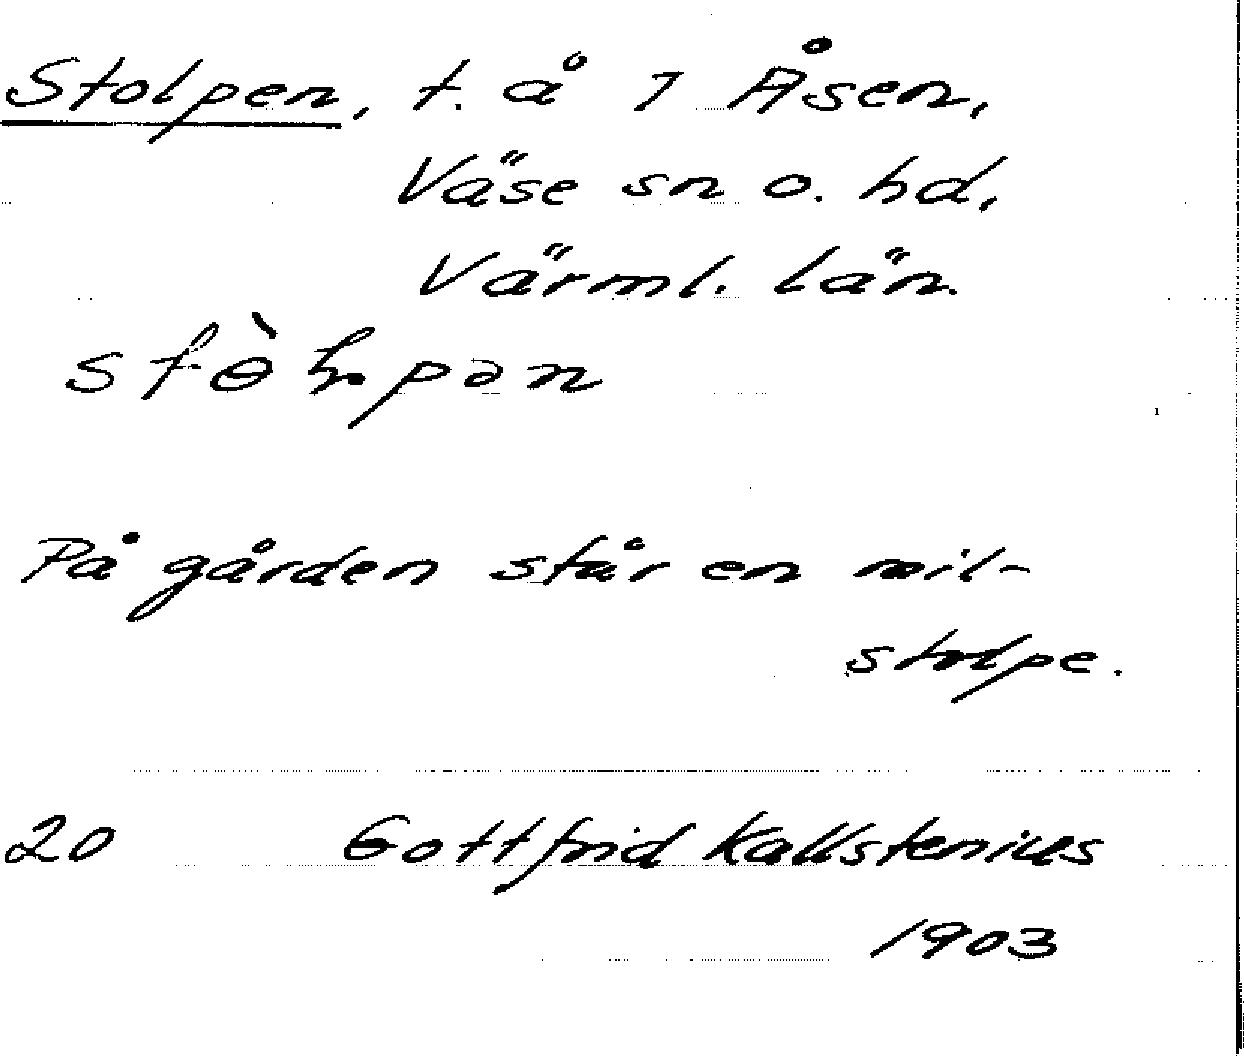 Stolpen, t. å 1 Åsen,
Väse sn o. hd,
Värml. län.
På gården står en mil-
stolpe.
20 Gottfrid Kallstenius
1903